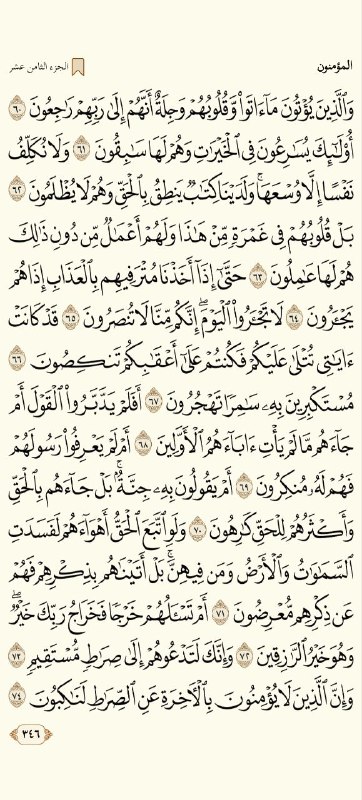 المؤمنون
الجزء الثامن عشر
وَٱلَّذِينَ يُؤۡتُونَ مَآ ءَاتَواْ وَّقُلُوبُهُمۡ وَجِلَةٌ أَنَّهُمۡ إِلَىٰ رَبِّهِمۡ رَٰجِعُونَ ٦٠
أُوْلَٰٓئِكَ يُسَٰرِعُونَ فِي ٱلۡخَيۡرَٰتِ وَهُمۡ لَهَا سَٰبِقُونَ ٦١ وَلَا نُكَلِّفُ
نَفۡسًا إِلَّا وُسۡعَهَاۚ وَلَدَيۡنَا كِتَٰبٞ يَنطِقُ بِٱلۡحَقِّ وَهُمۡ لَا يُظۡلَمُونَ ٦٢
بَلۡ قُلُوبُهُمۡ فِي غَمۡرَةٖ مِّنۡ هَٰذَا وَلَهُمۡ أَعۡمَٰلٞ مِّن دُونِ ذَٰلِكَ
هُمۡ لَهَا عَٰمِلُونَ ٦٣ حَتَّىٰٓ إِذَآ أَخَذۡنَا مُتۡرَفِيهِم بِٱلۡعَذَابِ إِذَا هُمۡ
يَجۡـَٔرُونَ ٦٤ لَا تَجۡـَٔرُواْ ٱلۡيَوۡمَۖ إِنَّكُم مِّنَّا لَا تُنصَرُونَ ٦٥ قَدۡ كَانَتۡ
ءَايَٰتِي تُتۡلَىٰ عَلَيۡكُمۡ فَكُنتُمۡ عَلَىٰٓ أَعۡقَٰبِكُمۡ تَنكِصُونَ ٦٦
مُسۡتَكۡبِرِينَ بِهِۦ سَٰمِرٗا تَهۡجُرُونَ ٦٧ أَفَلَمۡ يَدَّبَّرُواْ ٱلۡقَوۡلَ أَمۡ
جَآءَهُم مَّا لَمۡ يَأۡتِ ءَابَآءَهُمُ ٱلۡأَوَّلِينَ ٦٨ أَمۡ لَمۡ يَعۡرِفُواْ رَسُولَهُمۡ
فَهُمۡ لَهُۥ مُنكِرُونَ ٦٩ أَمۡ يَقُولُونَ بِهِۦ جِنَّةُۢۚ بَلۡ جَآءَهُم بِٱلۡحَقِّ
وَأَكۡثَرُهُمۡ لِلۡحَقِّ كَٰرِهُونَ ٧٠ وَلَوِ ٱتَّبَعَ ٱلۡحَقُّ أَهۡوَآءَهُمۡ لَفَسَدَتِ
ٱلسَّمَٰوَٰتُ وَٱلۡأَرۡضُ وَمَن فِيهِنَّۚ بَلۡ أَتَيۡنَٰهُم بِذِكۡرِهِمۡ فَهُمۡ
عَن ذِكۡرِهِم مُّعۡرِضُونَ ٧١ أَمۡ تَسۡـَٔلُهُمۡ خَرۡجٗا فَخَرَاجُ رَبِّكَ خَيۡرٞۖ
وَهُوَ خَيۡرُ ٱلرَّٰزِقِينَ ٧٢ وَإِنَّكَ لَتَدۡعُوهُمۡ إِلَىٰ صِرَٰطٖ مُّسۡتَقِيمٖ ٧٣
وَإِنَّ ٱلَّذِينَ لَا يُؤۡمِنُونَ بِٱلۡأٓخِرَةِ عَنِ ٱلصِّرَٰطِ لَنَٰكِبُونَ ٧٤
٣٤٦